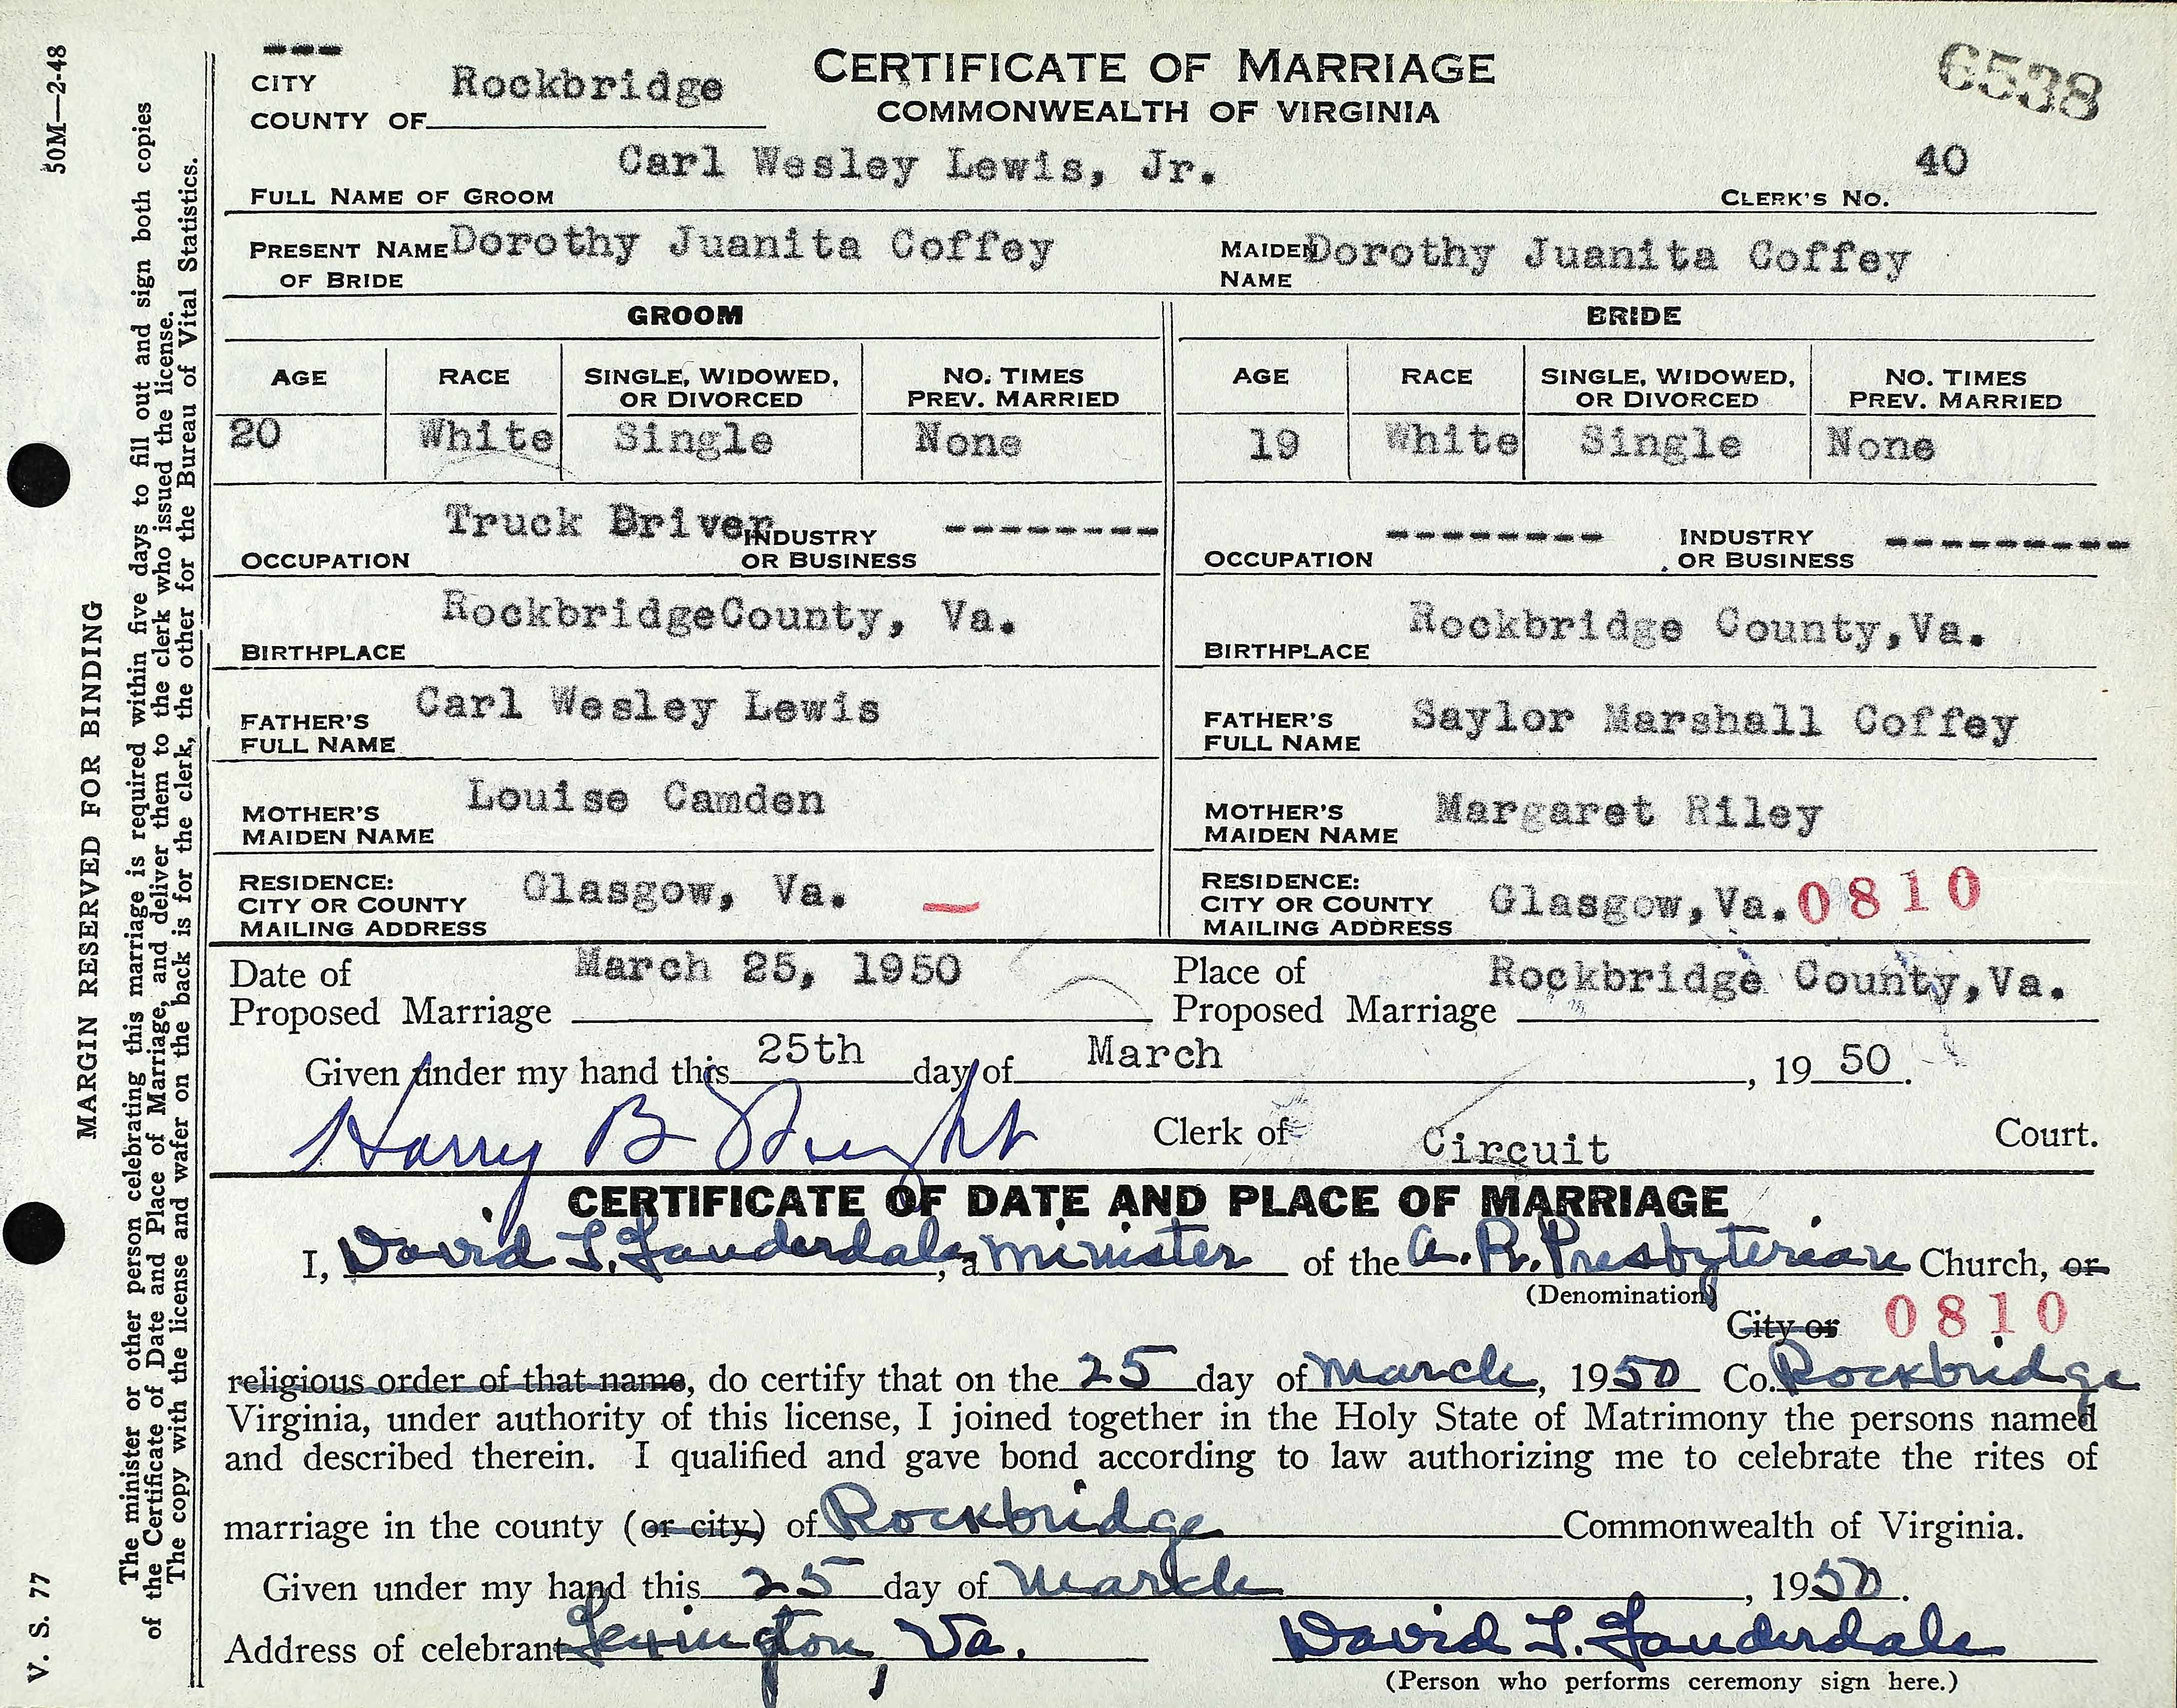 ---
CITY
COUNTY OF Rockbridge
CERTIFICATE OF MARRIAGE
COMMONWEALTH OF VIRGINIA
6538
FULL NAME OF GROOM Carl Wesley Lewis, Jr. CLERK'S NO. 40
PRESENT NAME OF BRIDE Dorothy Juanita Coffey MAIDEN NAME Dorothy Juanita Coffey
GROOM BRIDE
AGE RACE SINGLE, WIDOWED, OR DIVORCED NO. TIMES PREV. MARRIED AGE RACE SINGLE, WIDOWED, OR DIVORCED NO. TIMES PREV. MARRIED
20 White Single None 19 White Single None
OCCUPATION Truck Briver INDUSTRY OR BUSINESS -------- OCCUPATION --------- INDUSTRY OR BUSINESS ----------
BIRTHPLACE RockbridgeCounty, Va. BIRTHPLACE Rockbridge County,Va.
FATHER'S FULL NAME Carl Wesley Lewis FATHER'S FULL NAME Saylor Marshall Coffey
MOTHER'S MAIDEN NAME Louise Camden MOTHER'S MAIDEN NAME Margaret Riley
RESIDENCE: CITY OR COUNTY MAILING ADDRESS Glasgow, Va. — RESIDENCE: CITY OR COUNTY MAILING ADDRESS Glasgow,Va. 0810
Date of Proposed Marriage March 25, 1950 Place of Proposed Marriage Rockbridge County,Va.
Given under my hand this 25th day of March, 19 50.
Harry B Wright Clerk of Circuit Court.
CERTIFICATE OF DATE AND PLACE OF MARRIAGE
I, David T. Lauderdale, a minister of the A. R. Presbyterian Church, or
(Denomination)
City or 0810
religious order of that name, do certify that on the 25 day of March, 1950 Co. Rockbridge
Virginia, under authority of this license, I joined together in the Holy State of Matrimony the persons named
and described therein. I qualified and gave bond according to law authorizing me to celebrate the rites of
marriage in the county (or city) of Rockbridge Commonwealth of Virginia.
Given under my hand this 25 day of March, 1950.
Address of celebrant Lexington, Va. David T. Lauderdale
(Person who performs ceremony sign here.)
50M—2-48
MARGIN RESERVED FOR BINDING
V. S. 77
The minister or other person celebrating this marriage is required within five days to fill out and sign both copies
of the Certificate of Date and Place of Marriage, and deliver them to the clerk who issued the license.
The copy with the license and wafer on the back is for the clerk, the other for the Bureau of Vital Statistics.